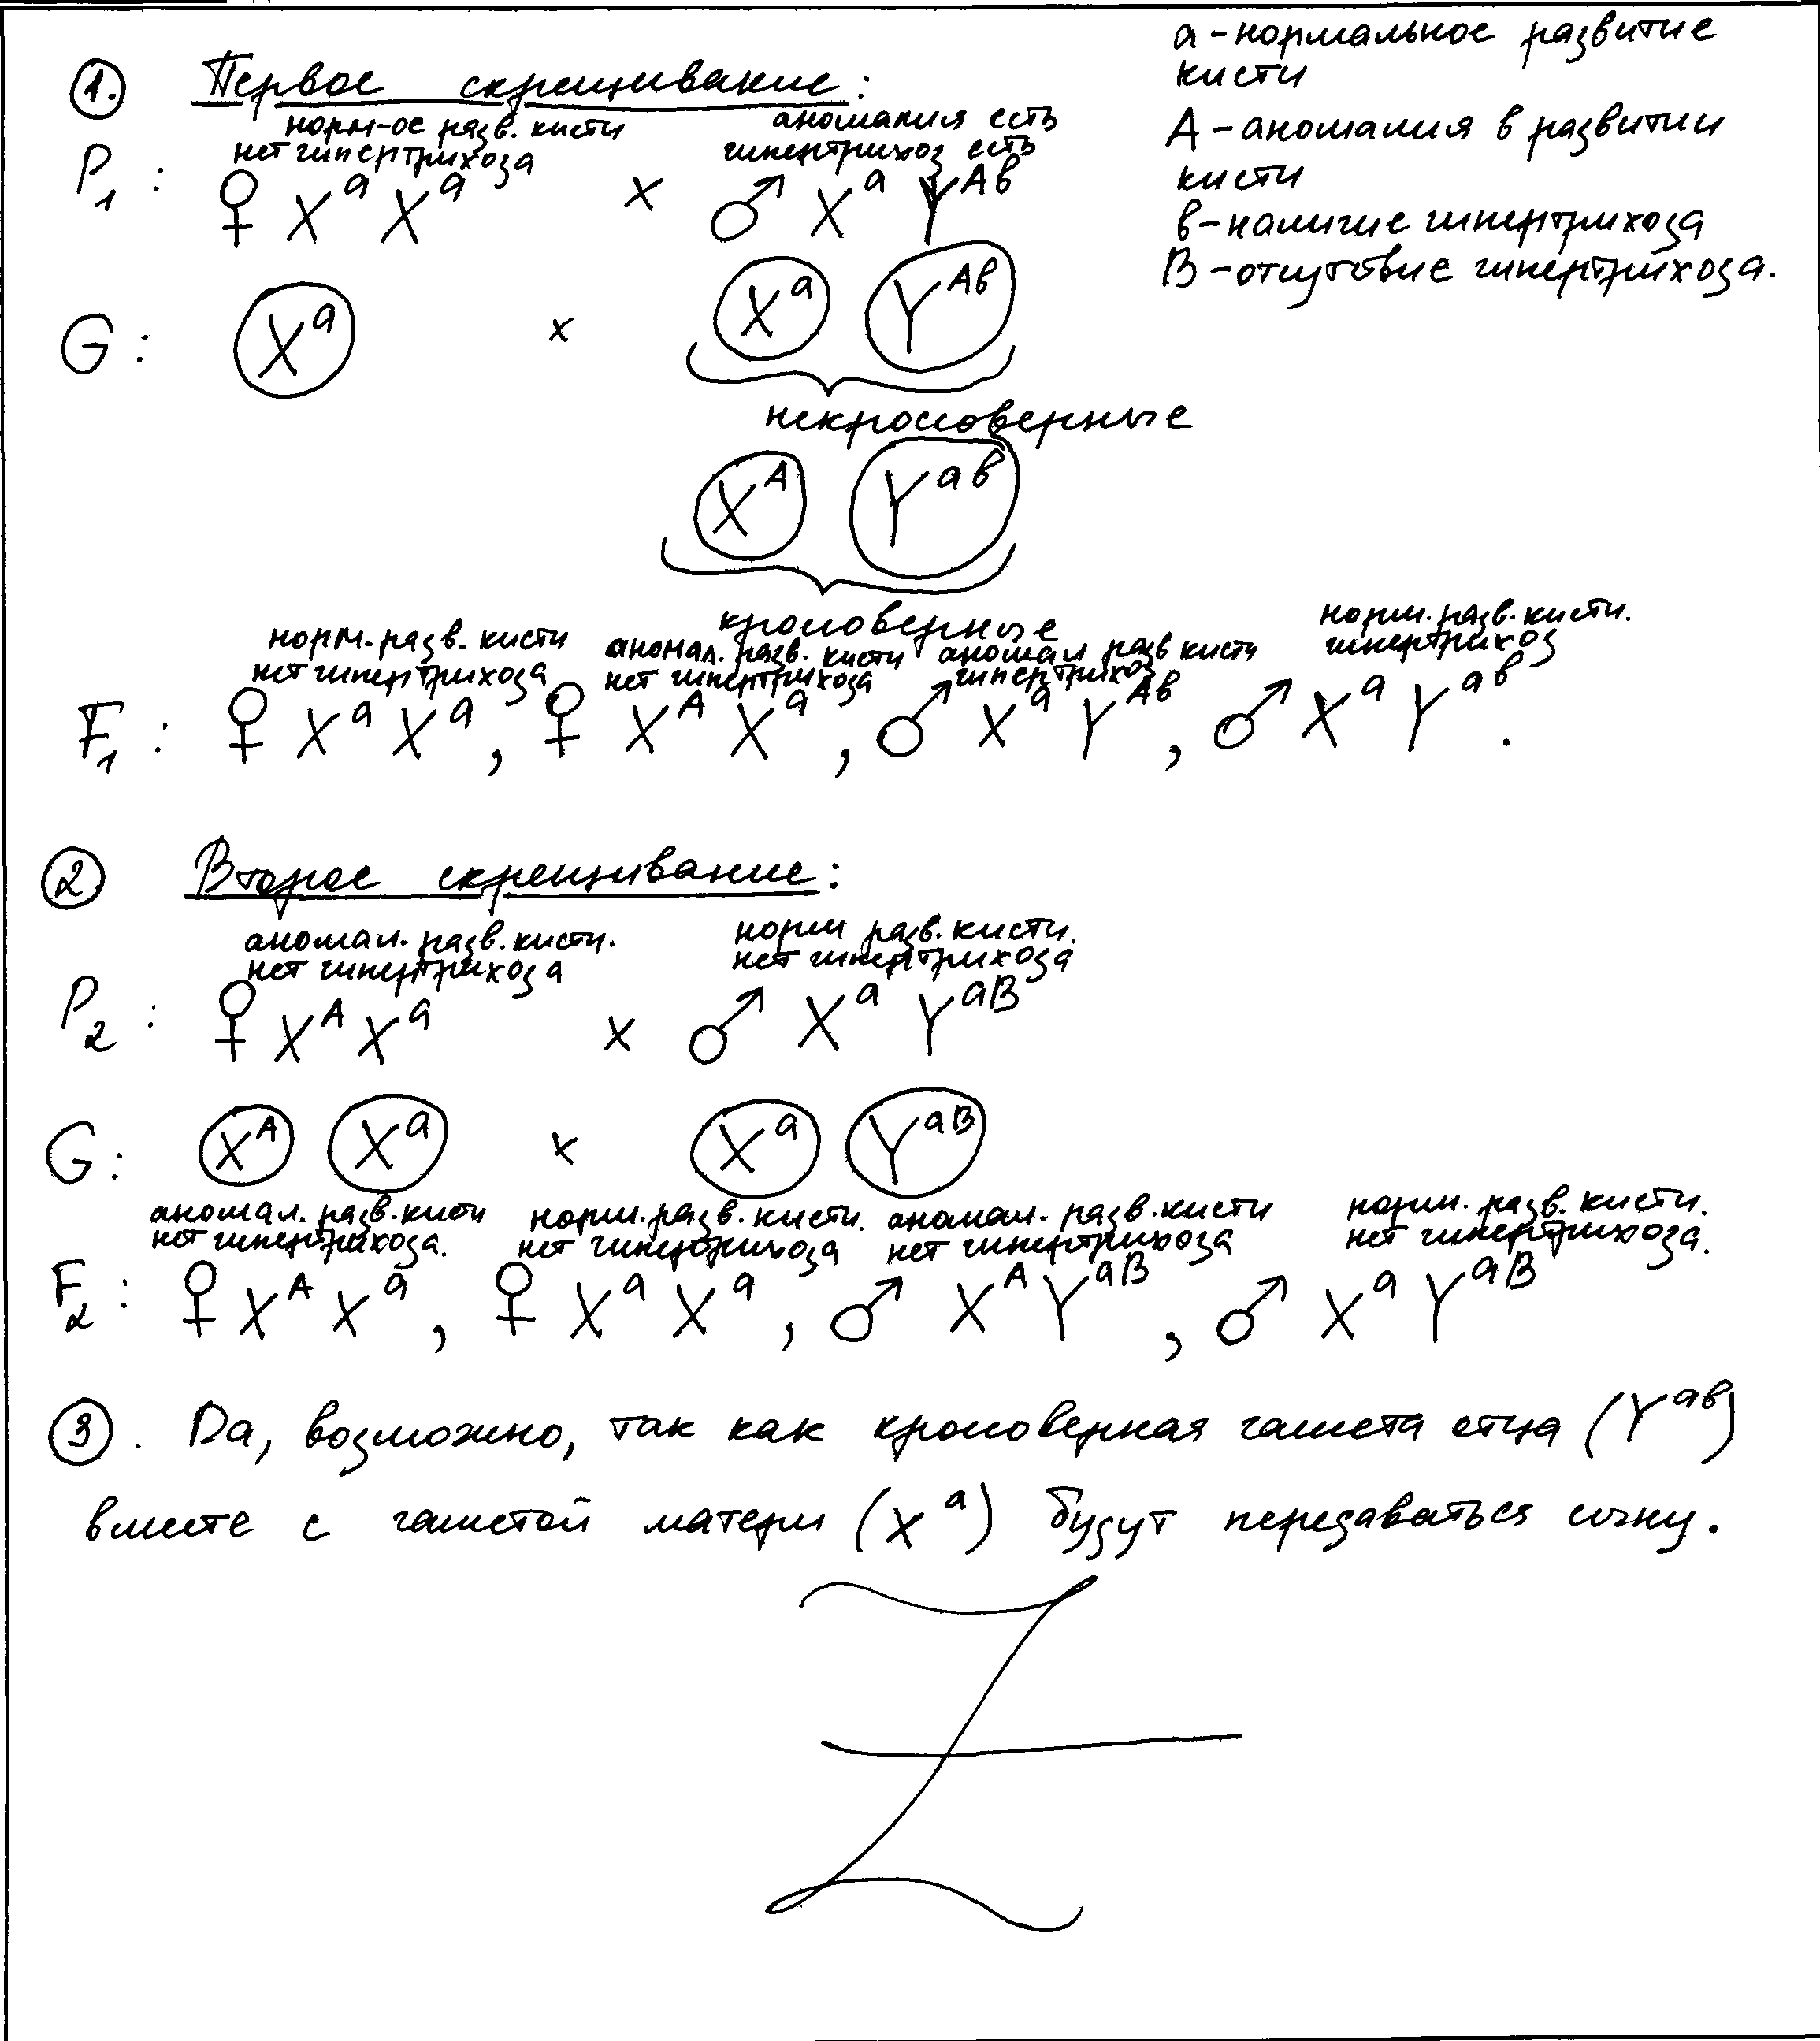 а - нормальное развитие
кисти
А - аномалия в развитии
кисти
в - наличие гипертрихоза
В - отсутствие гипертрихоза.
1. Первое скрещивание:
норм-ое разв. кисти
нет гипертрихоза
аномалия есть
гипертрихоз есть
P₁ : ♀ Xᵃ Xᵃ x ♂ Xᵃ Yᴬᵇ
G : Xᵃ x Xᵃ Yᴬᵇ
некроссоверные
Xᴬ Yᵃᵇ
кроссоверные
норм. разв. кисти
нет гипертрихоза
аномал. разв. кисти
нет гипертрихоза
аномал разв кисти
гипертрихоз
норм. разв. кисти.
гипертрихоз
F₁ : ♀ Xᵃ Xᵃ , ♀ Xᴬ Xᵃ , ♂ Xᵃ Yᴬᵇ , ♂ Xᵃ Yᵃᵇ .
2 Второе скрещивание:
аномал. разв. кисти.
нет гипертрихоза
норм разв. кисти.
нет гипертрихоза
P₂ : ♀ Xᴬ Xᵃ x ♂ Xᵃ Yᵃᴮ
G : Xᴬ Xᵃ x Xᵃ Yᵃᴮ
аномал. разв. кисти
нет гипертрихоза.
норм. разв. кисти.
нет гипертрихоза
аномал. разв. кисти
нет гипертрихоза
норм. разв. кисти.
нет гипертрихоза.
F₂ : ♀ Xᴬ Xᵃ , ♀ Xᵃ Xᵃ , ♂ Xᴬ Yᵃᴮ , ♂ Xᵃ Yᵃᴮ
3. Да, возможно, так как кроссоверная гамета отца (Yᵃᵇ)
вместе с гаметой матери (Xᵃ) будут передаваться сыну.